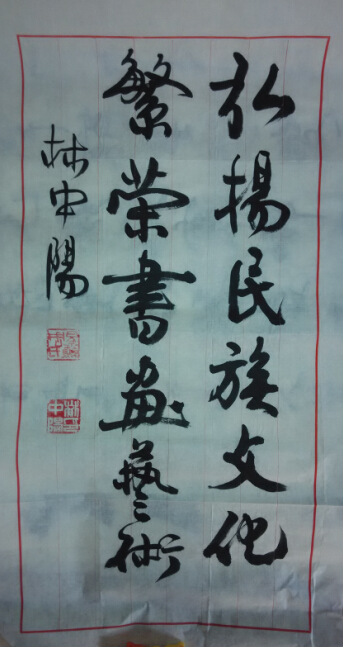 弘揚民族文化
繁荣書画藝術
林中陽